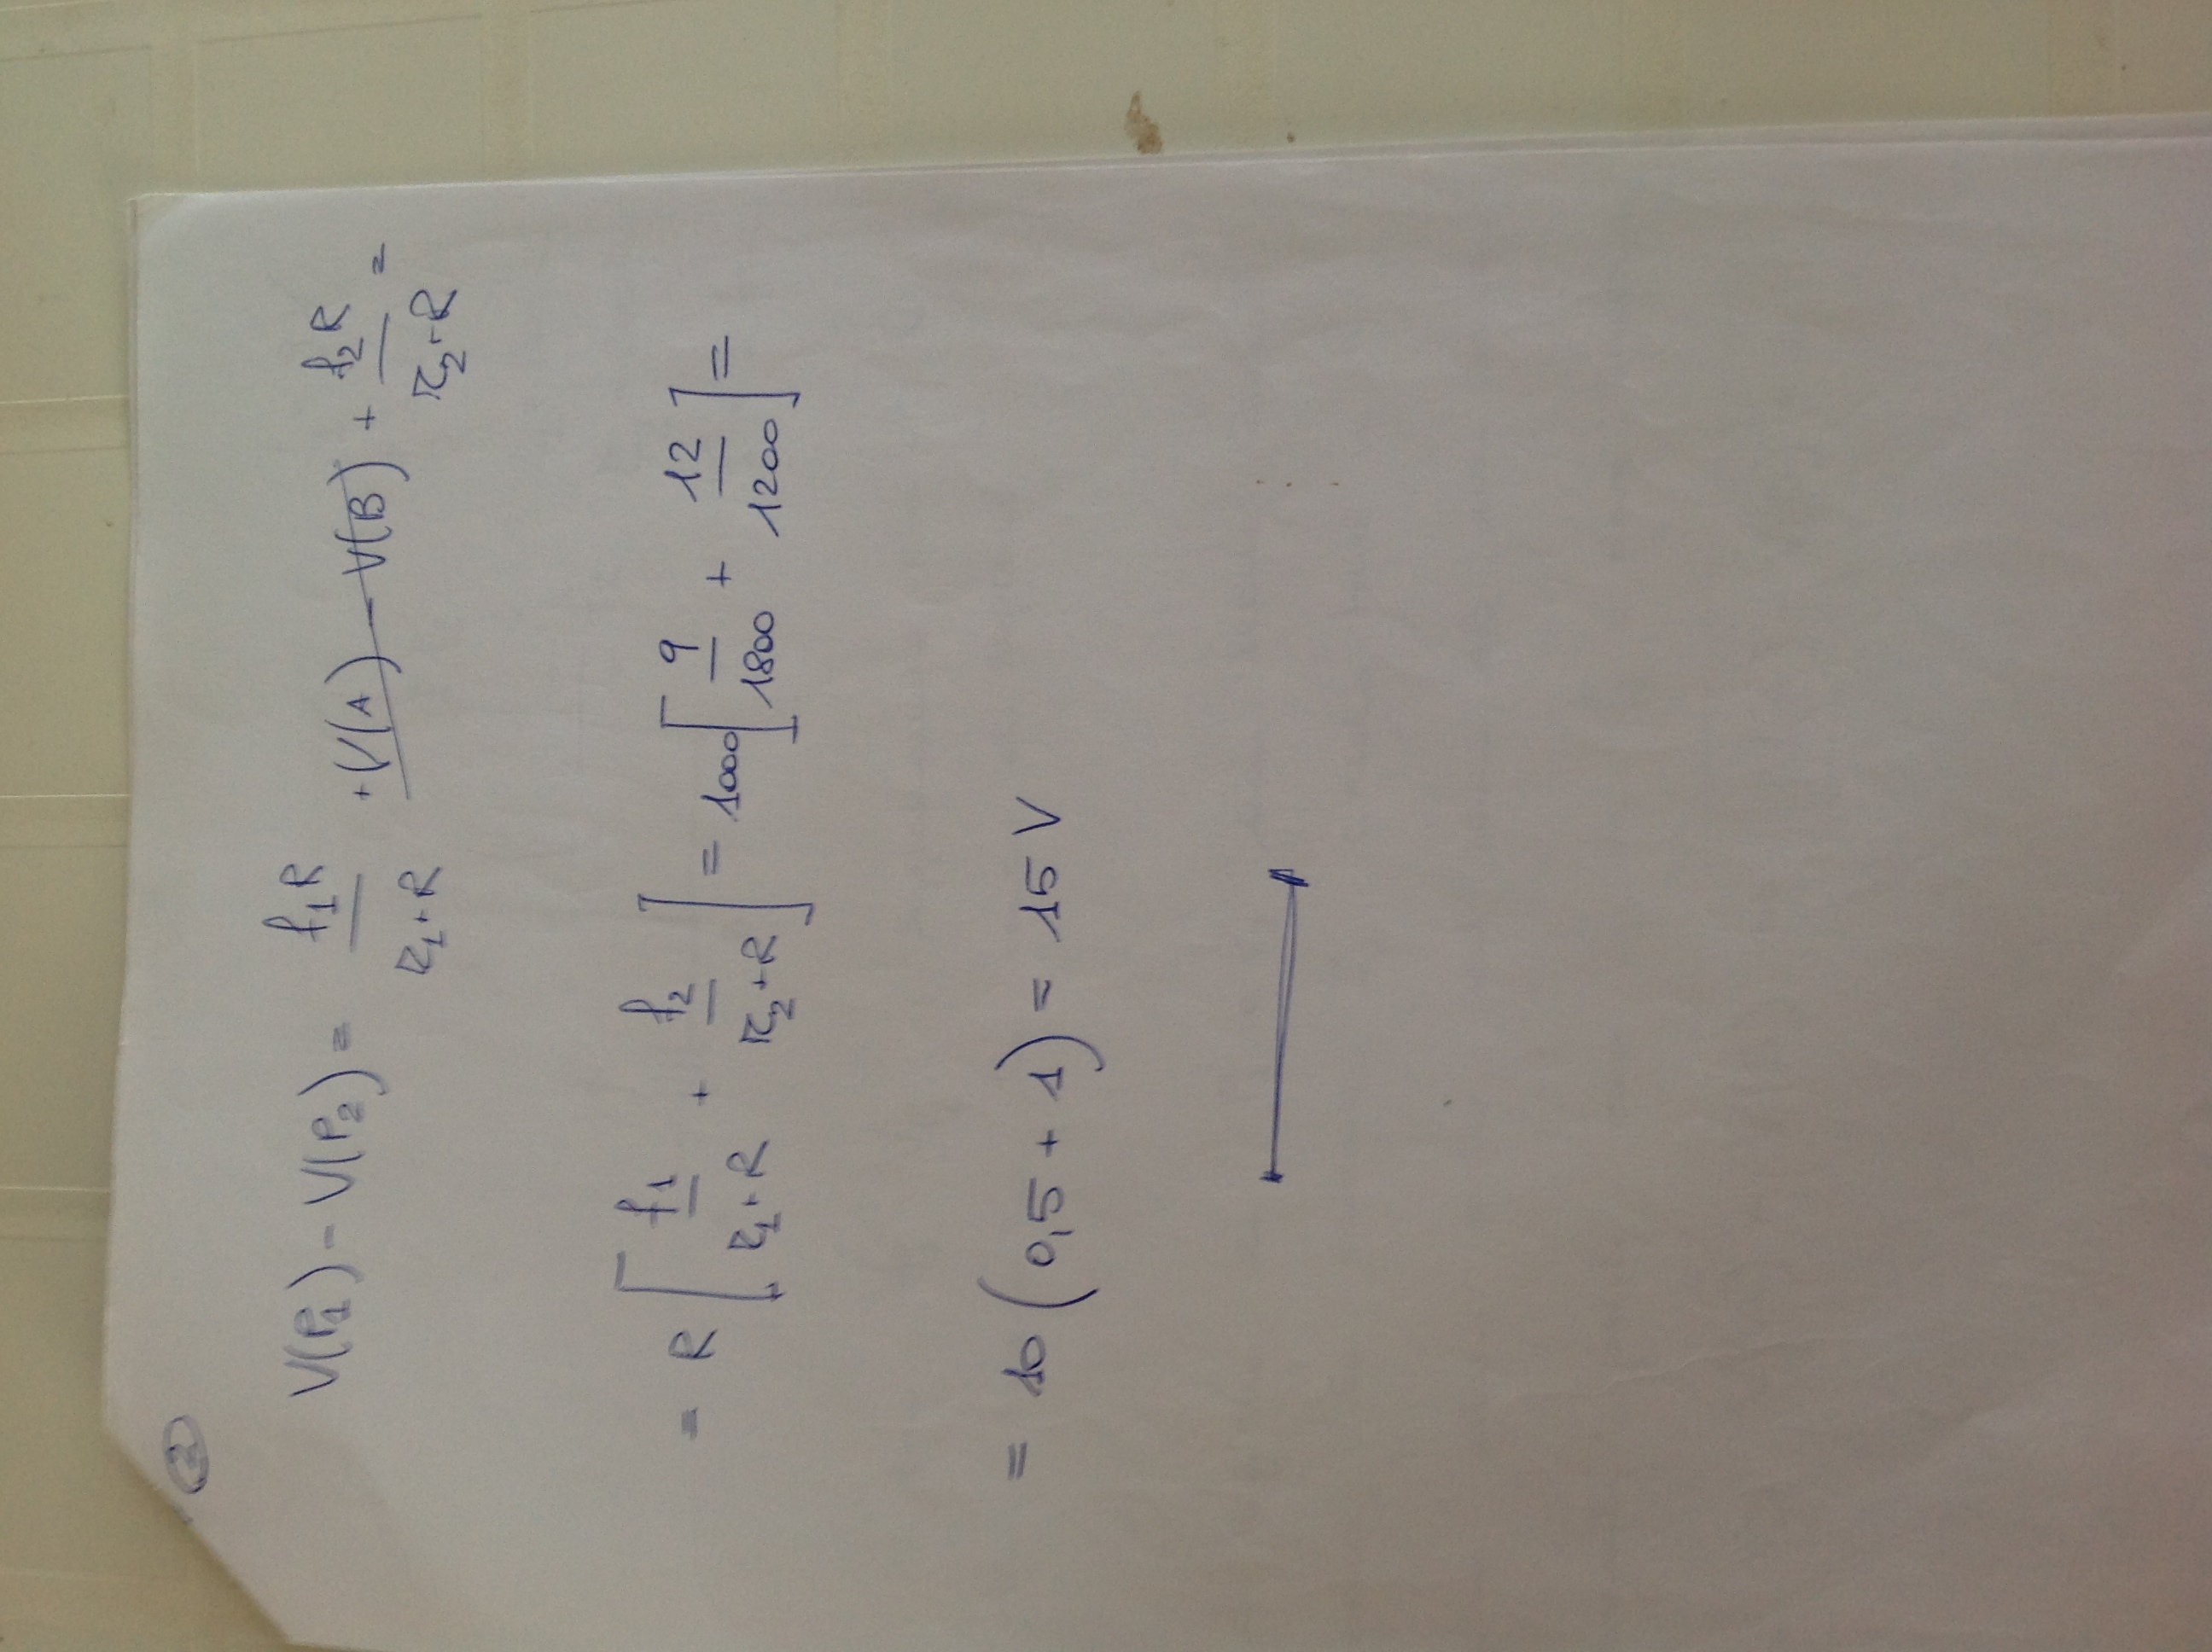 2
V(P₁) - V(P₂) = f₁R / (r₁+R) + V(A) - V(B) + f₂R / (r₂+R) =
= R [ f₁ / (r₁+R) + f₂ / (r₂+R) ] = 1000 [ 9 / 1800 + 12 / 1200 ] =
= 10 (0,5 + 1) = 15 V